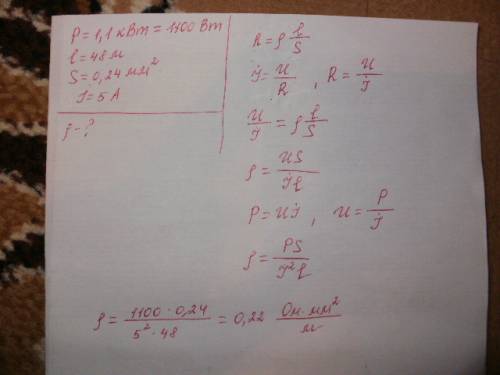 P = 1,1 кВт = 1100 Вт
l = 48 м
S = 0,24 мм²
I = 5 А
ρ - ?
R = ρ l/S
I = U/R , R = U/I
U/I = ρ l/S
ρ = US/Il
P = UI , U = P/I
ρ = PS/I²l
ρ = 1100 · 0,24 / 5² · 48 = 0,22 Ом · мм²/м